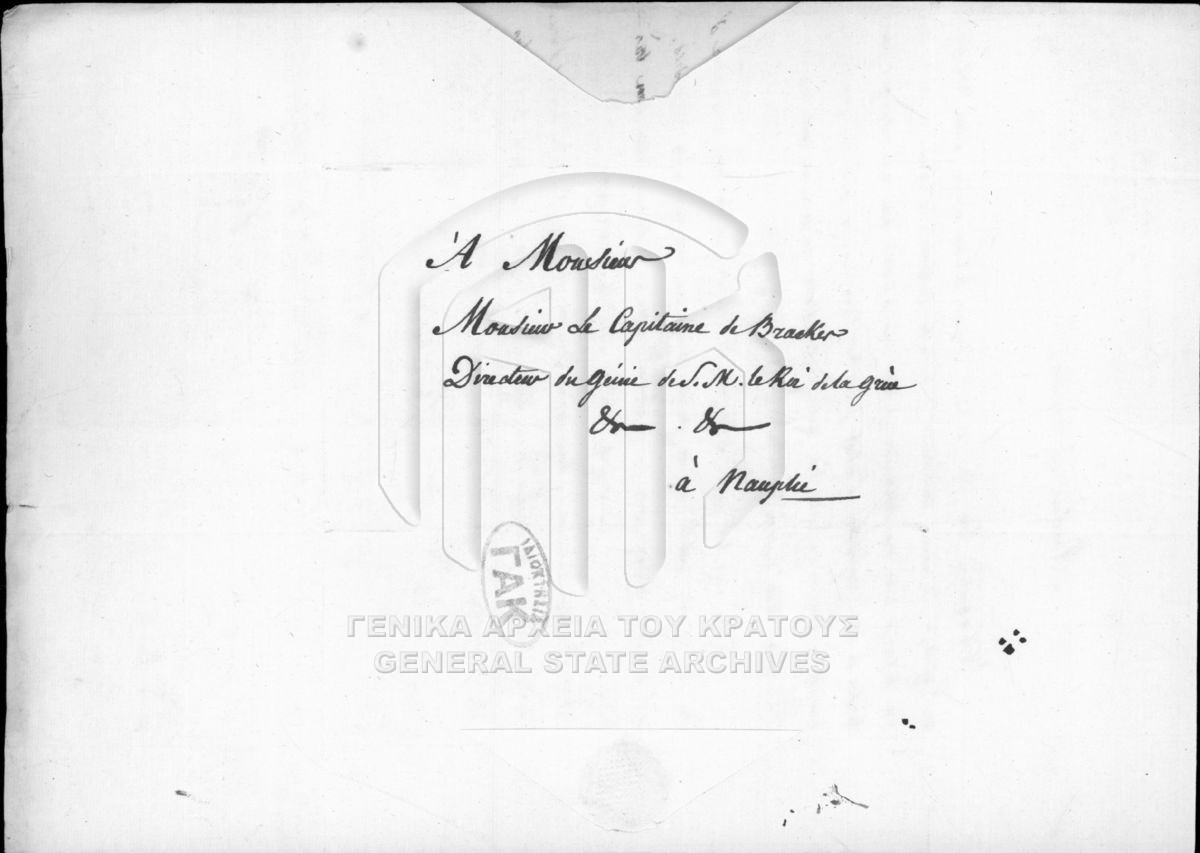 À Monsieur
Monsieur Le Capitaine de Bracker
Directeur du Génie de S. M. le Roi de la Grèce
&c . &c
à Nauplie
ΙΔΙΟΚΤΗΣΙΣ
ΓΑΚ
ΓΕΝΙΚΑ ΑΡΧΕΙΑ ΤΟΥ ΚΡΑΤΟΥΣ
GENERAL STATE ARCHIVES